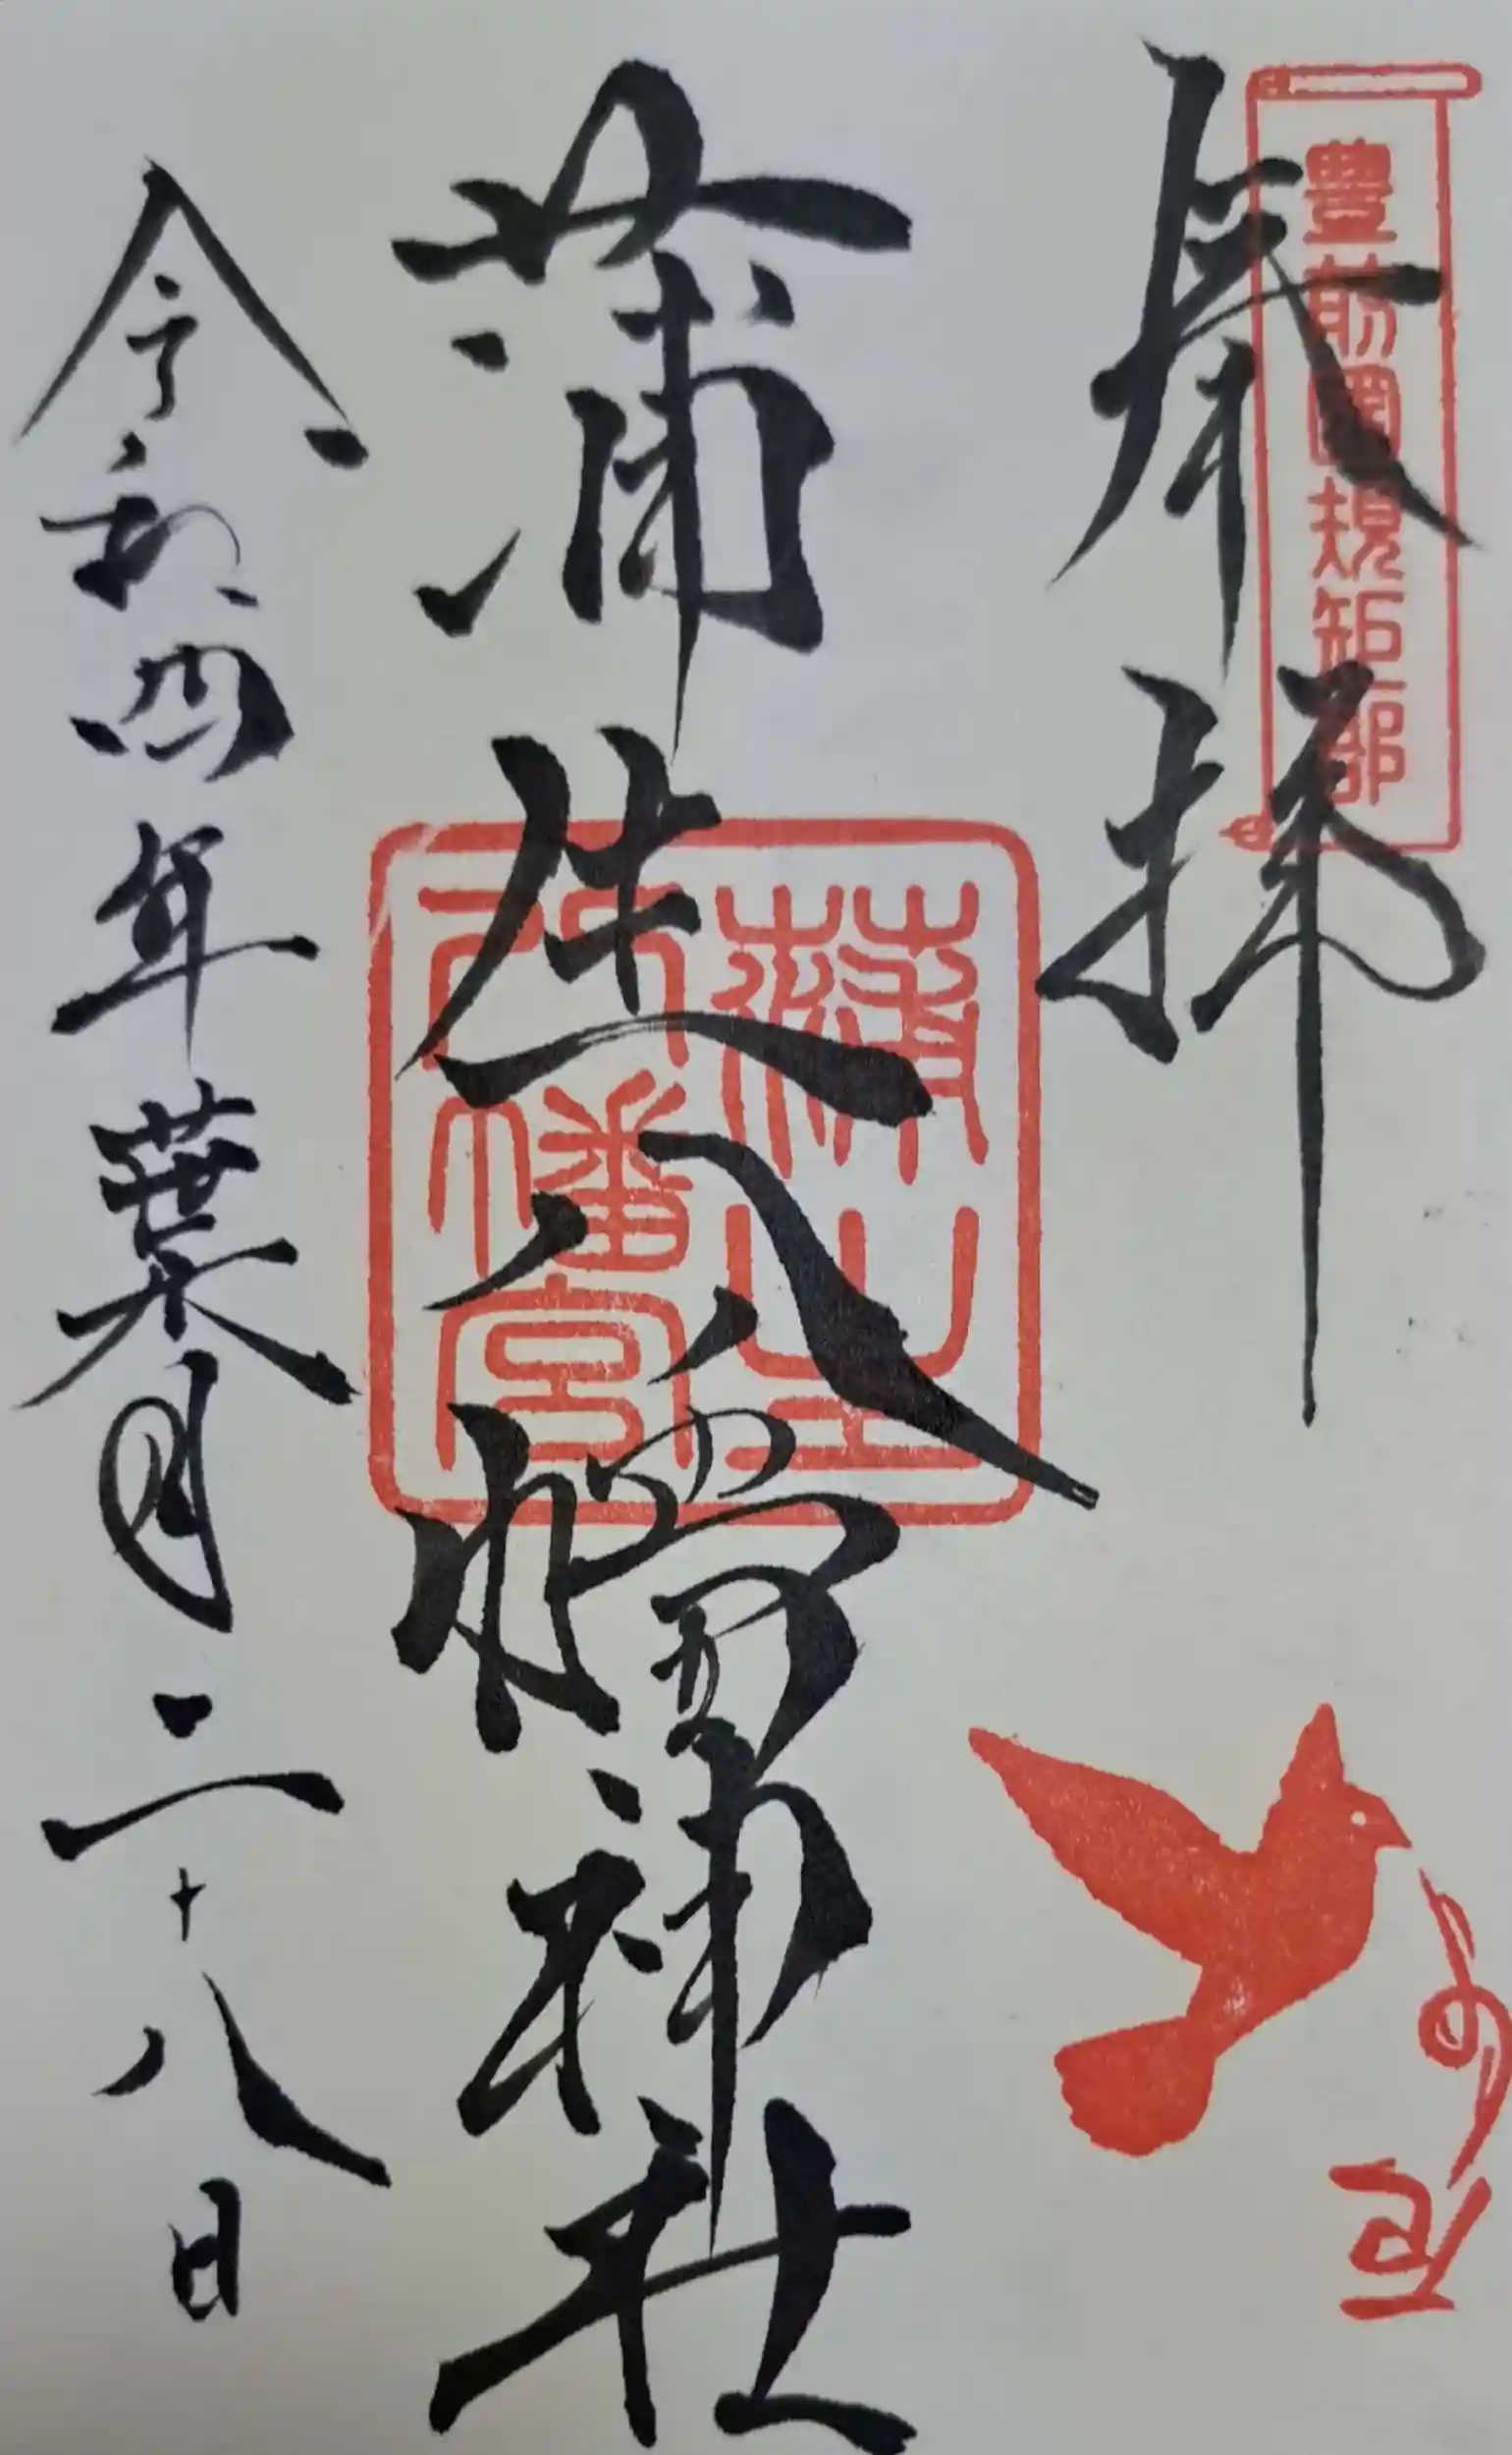 豊前國規矩郡
奉拝
蒲生八幡神社
蒲生
八幡宮
令和四年葉月二十八日